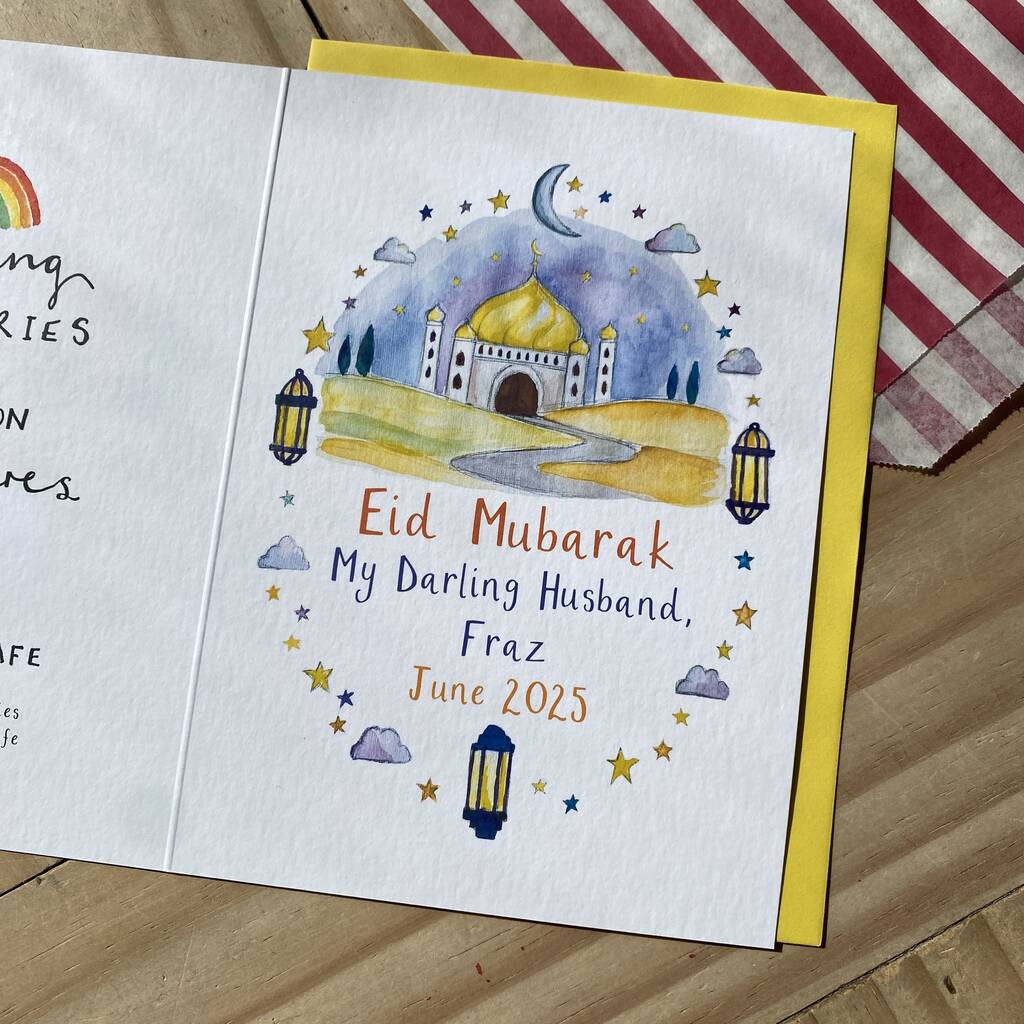 RIES
ON
AFE
Eid Mubarak
My Darling Husband,
Fraz
June 2025